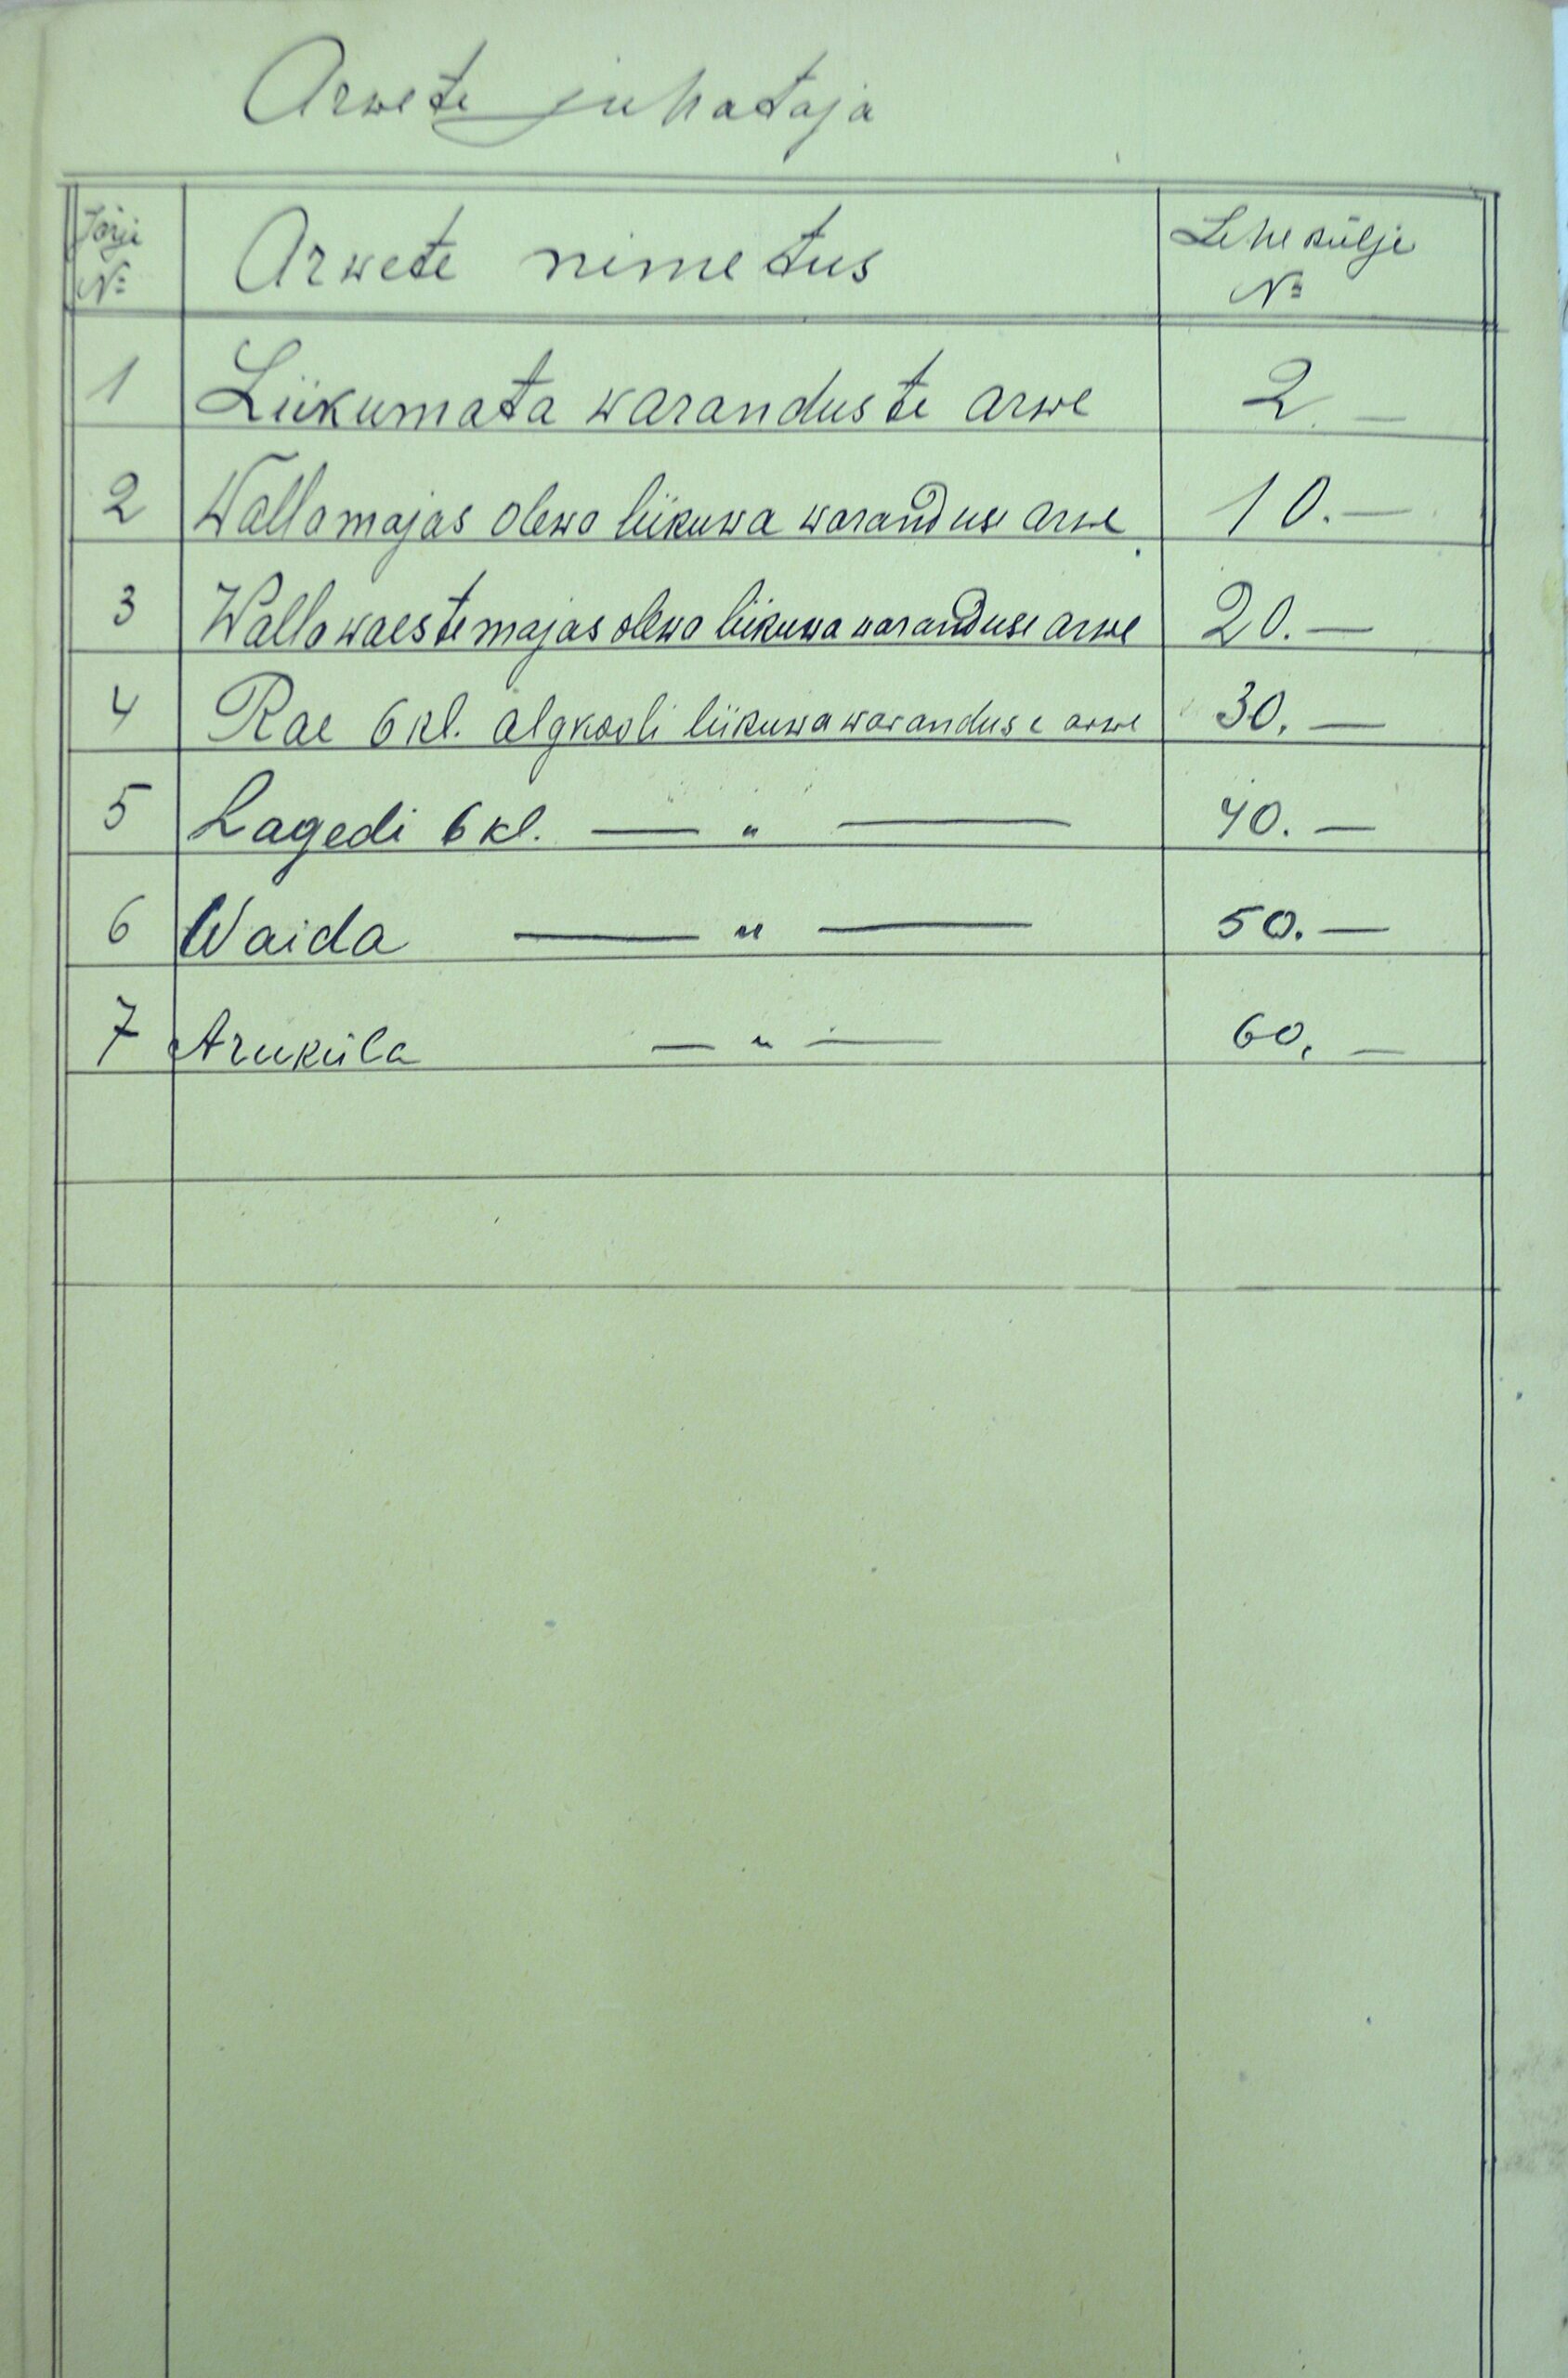 Arwete juhataja
Järje № Arwete nimetus Lehekülje №
1 Liikumata waranduste arwe 2. —
2 Wallamajas olewa liikuwa waranduse arwe 10. —
3 Wallawaestemajas olewa liikuwa waranduse arwe 20. —
4 Rae 6 kl. algkooli liikuwa waranduse arwe 30. —
5 Lagedi 6 kl. — " — 40. —
6 Waida — " — 50. —
7 Aruküla — " — 60. —